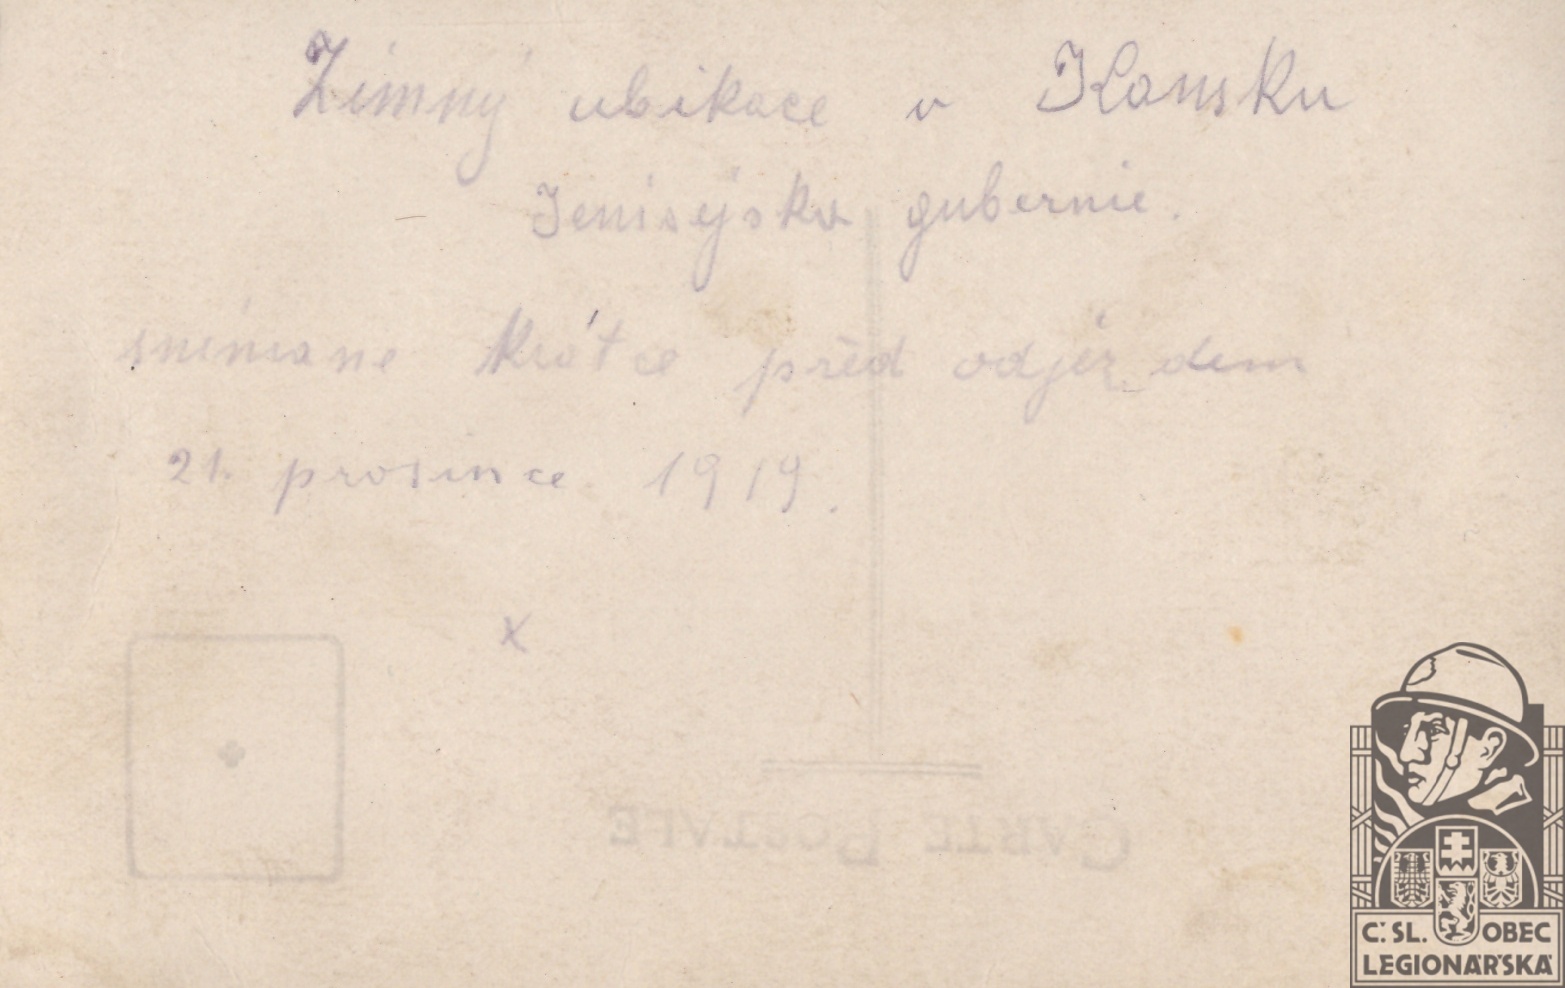 Zimný ubikace v Kansku
Jenisejska gubernie.
snímane krátce před odjezdem
21. prosince 1919.
x
CARTE POSTALE
Č. SL. OBEC
LEGIONÁŘSKÁ